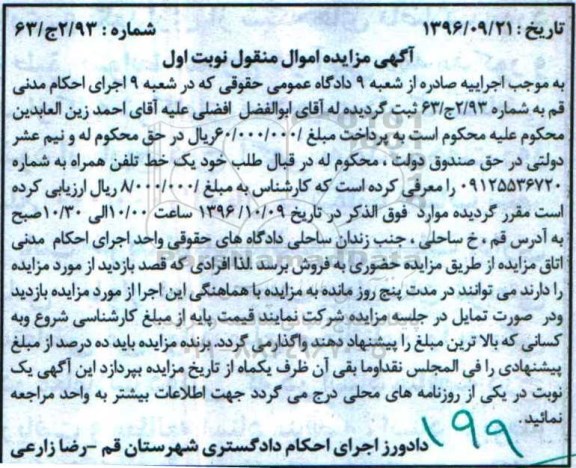 تاریخ : ۱۳۹۶/۰۹/۲۱ شماره : ۲/۹۳ج/۶۳
آگهی مزایده اموال منقول نوبت اول
به موجب اجراییه صادره از شعبه ۹ دادگاه عمومی حقوقی که در شعبه ۹ اجرای احکام مدنی
قم به شماره ۲/۹۳ج/۶۳ ثبت گردیده له آقای ابوالفضل افضلی علیه آقای احمد زین العابدین
محکوم علیه محکوم است به پرداخت مبلغ /۶۰/۰۰۰/۰۰۰ریال در حق محکوم له و نیم عشر
دولتی در حق صندوق دولت ، محکوم له در قبال طلب خود یک خط تلفن همراه به شماره
۰۹۱۲۵۵۳۶۷۲۰ را معرفی کرده است که کارشناس به مبلغ /۸/۰۰۰/۰۰۰ ریال ارزیابی کرده
است مقرر گردیده موارد فوق الذکر در تاریخ ۱۳۹۶/۱۰/۰۹ ساعت ۱۰/۰۰الی ۱۰/۳۰صبح
به آدرس قم ، خ ساحلی ، جنب زندان ساحلی دادگاه های حقوقی واحد اجرای احکام مدنی
اتاق مزایده از طریق مزایده حضوری به فروش برسد .لذا افرادی که قصد بازدید از مورد مزایده
را دارند می توانند در مدت پنج روز مانده به مزایده با هماهنگی این اجرا از مورد مزایده بازدید
ودر صورت تمایل در جلسه مزایده شرکت نمایند قیمت پایه از مبلغ کارشناسی شروع وبه
کسانی که بالا ترین مبلغ را پیشنهاد دهند واگذار می گردد. برنده مزایده باید ده درصد از مبلغ
پیشنهادی را فی المجلس نقداوما بقی آن ظرف یکماه از تاریخ مزایده بپردازد این آگهی یک
نوبت در یکی از روزنامه های محلی درج می گردد جهت اطلاعات بیشتر به واحد مراجعه
نمائید.
۱۹۹
دادورز اجرای احکام دادگستری شهرستان قم -رضا زارعی